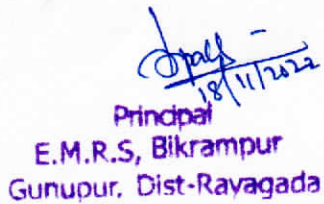 18/11/2022
Principal
E.M.R.S, Bikrampur
Gunupur. Dist-Rayagada